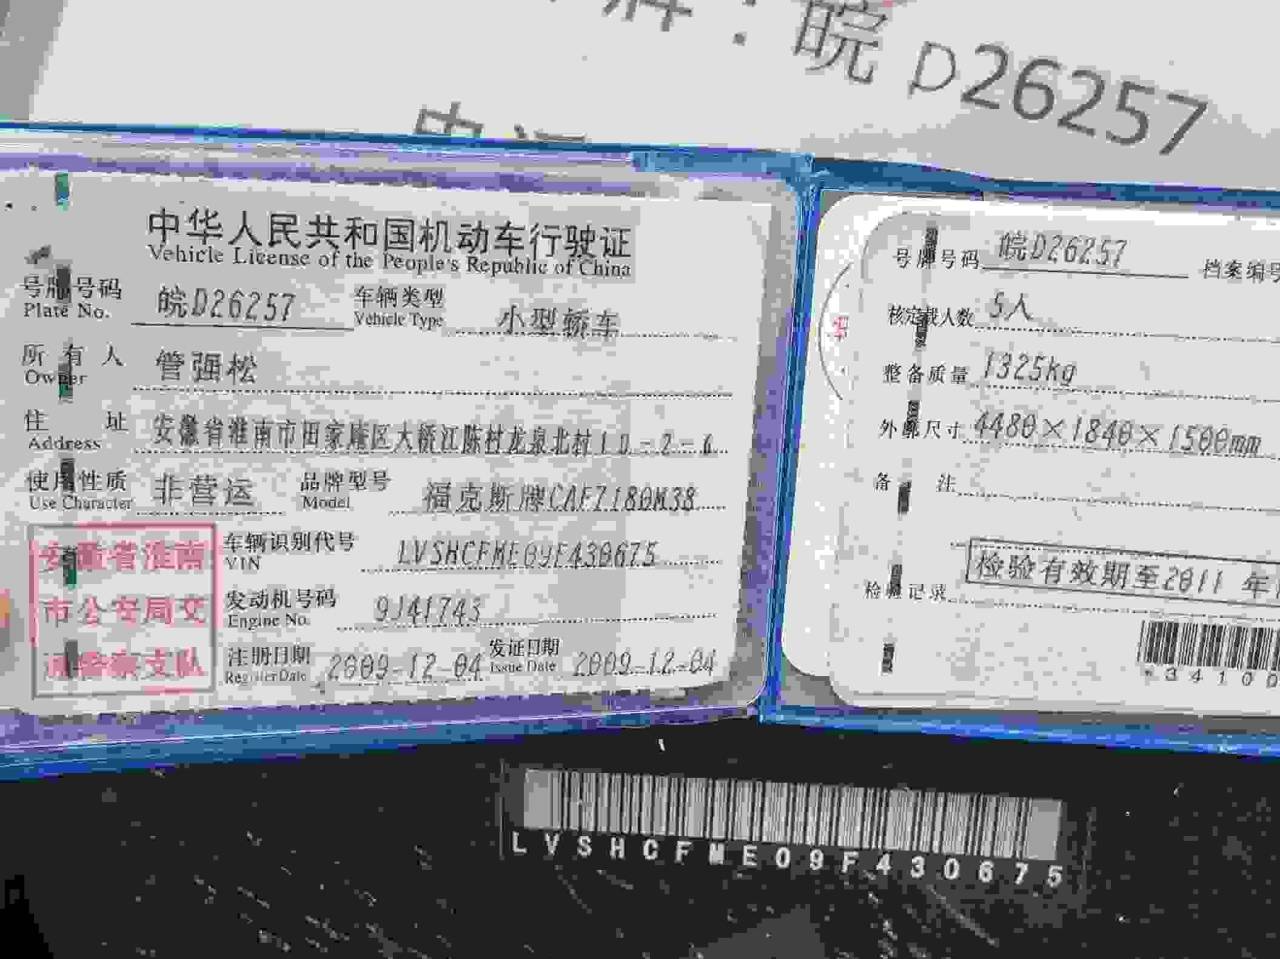 牌：皖D26257
中华人民共和国机动车行驶证
Vehicle License of the People's Republic of China
号牌号码 皖D26257 车辆类型 小型轿车
Plate No. Vehicle Type
所有人 管强松
Owner
住址 安徽省淮南市田家庵区大桥江陈村龙泉北村10-2-6
Address
使用性质 非营运 品牌型号 福克斯牌CAF7180M38
Use Character Model
车辆识别代号 LVSHCFME09F430675
VIN
发动机号码 9J41743
Engine No.
注册日期 2009-12-04 发证日期 2009-12-04
Register Date Issue Date
安徽省淮南
市公安局交
通警察支队
号牌号码 皖D26257 档案编号
核定载人数 5人
整备质量 1325kg
外廓尺寸 4480×1840×1500mm
备注
检验记录 检验有效期至2011年
*34100
LVSHCFME09F430675